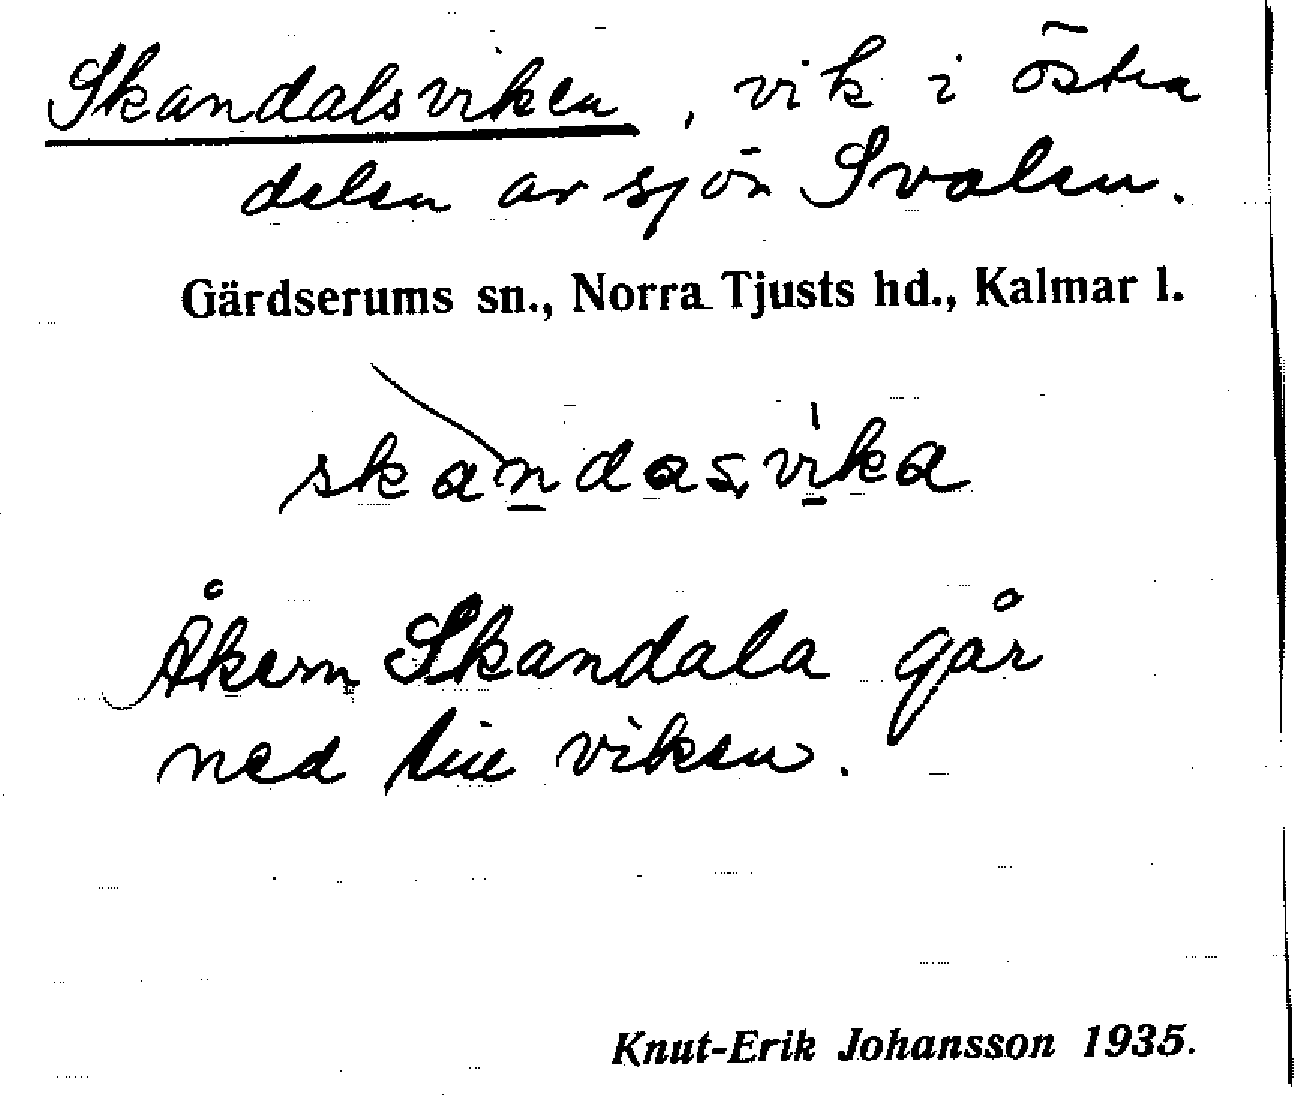 Skandalsviken, vik i östra
delen av sjön Svalen.
Gärdserums sn., Norra Tjusts hd., Kalmar l.
skandasvika
Åkern Skandala går
ned till viken.
Knut-Erik Johansson 1935.